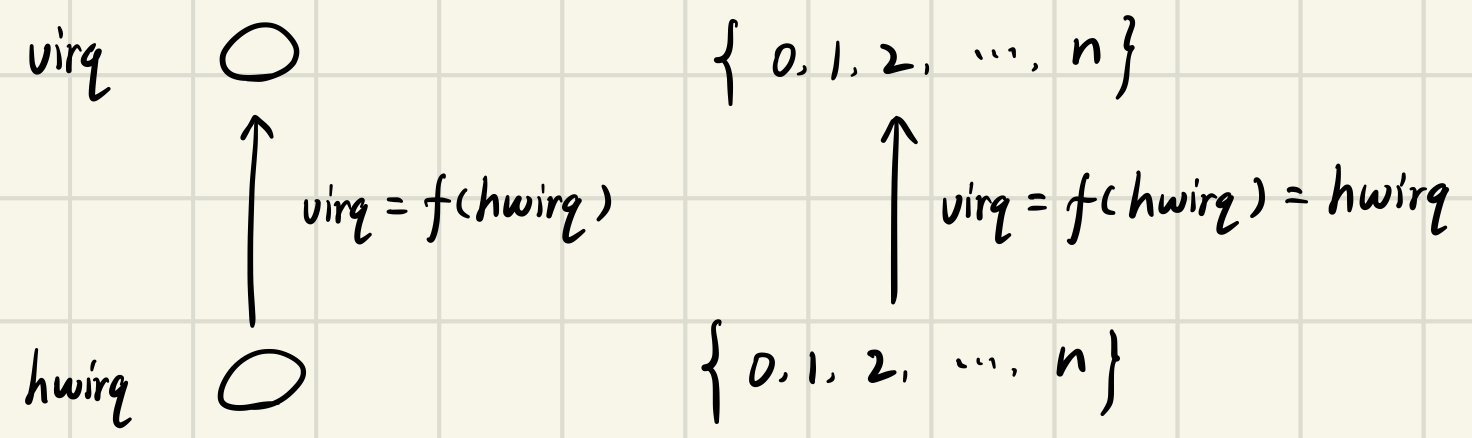 virq { 0, 1, 2, ..., n }
virq = f(hwirq) virq = f(hwirq) = hwirq
hwirq { 0, 1, 2, ..., n }